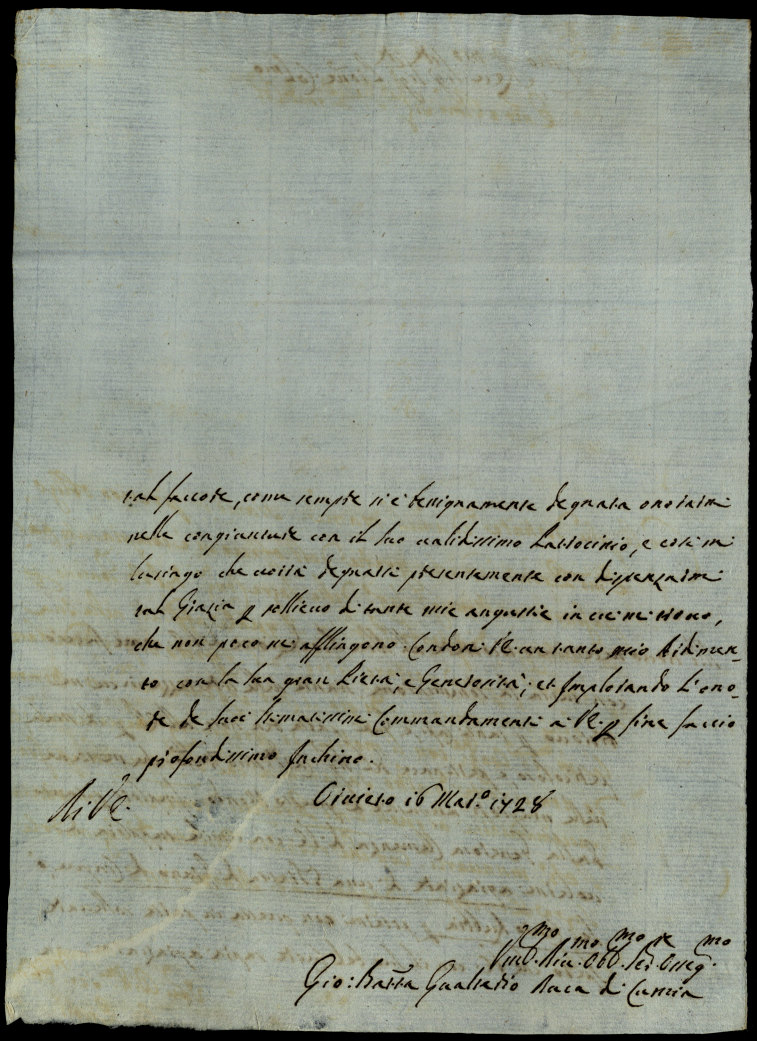 tal favore, come sempre si è benignamente degnata onorarmi
nelle congiunture con il suo validissimo Patrocinio, e così mi
lusingo che vorrà degnarsi presentemente con dispenzarmi
tal Grazia p sollievo di tante mie angustie in cui mi trovo,
che non poco mi affliggono. Condoni VE. un tanto mio Ardimen-
to con la sua gran Pietà, e Generosità; et Implorando l'ono-
re de suoi stimatissimi Commandamenti a VE. p fine faccio
profondissimo Inchino.
Di VE.
Orvieto 16 Mar.o 1728
Vmil.mo Div.mo Obb.mo Ser.re Osseq.mo
Gio: Batta Gualterio Duca di Cumia